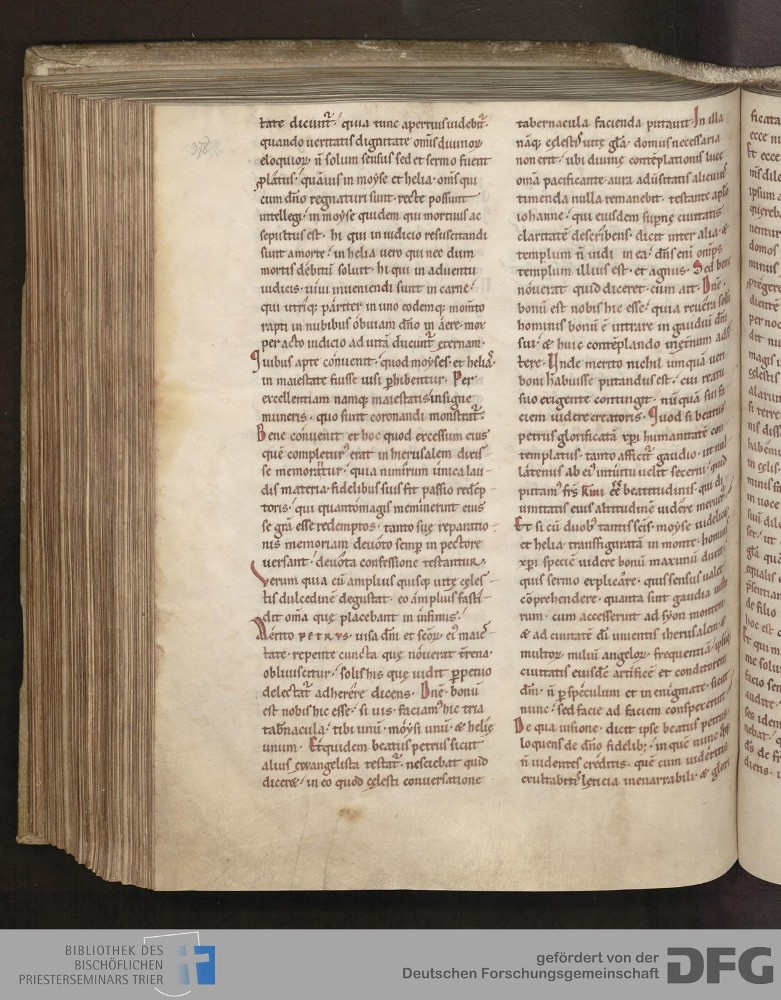 378
tate dicunt͛. quia tunc apertius uideb͛.
quando ueritatis dignitate om̅is diuinoꝝ
eloquioꝝ. n̅ solum sensus sed et sermo fuerit
p̱latus. quãuis in moẏse et helia. om̅s qui
cum dn̅o regnaturi sunt. recte possunt
intellegi. in moẏse quidem qui mortuus ac
sepultus est. hi qui in iudicio resuscitandi
sunt a morte. in helia uero qui nec dum
mortis debitũ soluit. hi qui in aduentu
iudicis. uiui inueniendi sunt in carne.
qui utriq; pariter in uno eodemq; mom̅to
rapti in nubibus obuiam dn̅o in aere. mox
per acto iudicio ad uitã ducunt͛ ęternam.
Quibus apte conuenit. quod moẏses et heliã
in maiestate fuisse uisi ꝑhibentur. Per
excellentiam namq; maiestatis. insigne
muneris. quo sunt coronandi monstrat͛.
Bene conuenit et hoc quod excessum eius
quẽ completurꝰ erat in hierusalem dixis-
se memorãtur. quia nimirum unica lau-
dis materia fidelibus suis fit passio redẽp-
toris. qui quanto magis meminerunt eius
se gr̅a esse redemptos. tanto suę reparatio-
nis memoriam deuoto semꝑ in pectore
uersant. deuota confessione testantur.
Verum quia cũ amplius quisq; uitę cęles-
tis dulcedinẽ degustat. eo amplius fasti-
dit om̅a quę placebant in infimis.
Merito PETRVS. uisa dn̅i et sc̅oꝝ eiꝰ maies-
tate. repente cuncta quę nouerat tr̅rena.
obliuiscitur. solis his quę uidit perpetuo
delectat͛ adherere dicens. Dn̅e. bonũ
est nobis hic esse. si uis. faciamꝰ hic tria
tab̅nacula. tibi unũ. moẏsi unũ. & helię
unum. Et quidem beatus petrus sicut
alius euuangelista testat͛. nesciebat quid
dicer&. in eo quod cęlesti conuersatione
tabernacula facienda putauit. In illa
nãq; cęlestis uitę gl̅a. domus necessaria
non erit. ubi diuinę contẽplationis luce
om̅a pacificante. aura aduersitatis alicuius
timenda nulla remanebit. testante apl̅o
iohanne. qui eiusdem supn̅ę ciuitatis
claritatẽ describens. dicit inter alia. &
templum n̅ uidi in ea. dn̅s eni̅ om̅ps
templum illius est. et agnus. Sed bene
nouerat quid diceret. cum ait. Dn̅e.
bonũ est nobis hic esse. quia reuera solũ
hominis bonũ ẽ intrare in gaudiũ dn̅i
sui. & huic contẽplando in ęternum adsis-
tere. Unde merito nichil umquã ueri
boni habuisse putandus est. cui reatu
suo exigente contingit. nũquã sui fa
ciem uidere creatoris. Quod si beatus
petrus glorificatã xp̅i humanitatẽ con
templatus. tanto afficit͛ gaudio. ut nul
latenus ab eiꝰ intuitu uelit secerni. quid
putamꝰ fr̅s kmi ẽẽ beatitudinis. qui di
uinitatis eius altitudinẽ uidere meruer̅
Et si cũ duobꝰ tantũ sc̅is. moẏse uidelicet
et helia. transfiguratã in monte. hominis
xp̅i speciẽ uidere bonũ maximũ duxit.
quis sermo explicare. quis sensus ualet
cõprehendere. quanta sint gaudia iusto
rum. cum accesserint ad sẏon montem
& ad ciuitatẽ dĩ uiuentis iherusalem. &
multoꝝ miliũ angeloꝝ frequentiã. ipsiusq;
ciuitatis eiusdẽ artificẽ et conditorem
dm̅. n̅ ꝑ speculum et in enigmate. sicut
nunc. sed facie ad faciem conspexerint.
De qua uisione. dicit ipse beatus petrus
loquens de dn̅o fidelibꝰ. in quẽ nunc quoq;
n̅ uidentes creditis. quẽ cum uideritis
exultabitis leticia inenarrabili. & glori
BIBLIOTHEK DES
BISCHÖFLICHEN
PRIESTERSEMINARS TRIER
gefördert von der
Deutschen Forschungsgemeinschaft
DFG